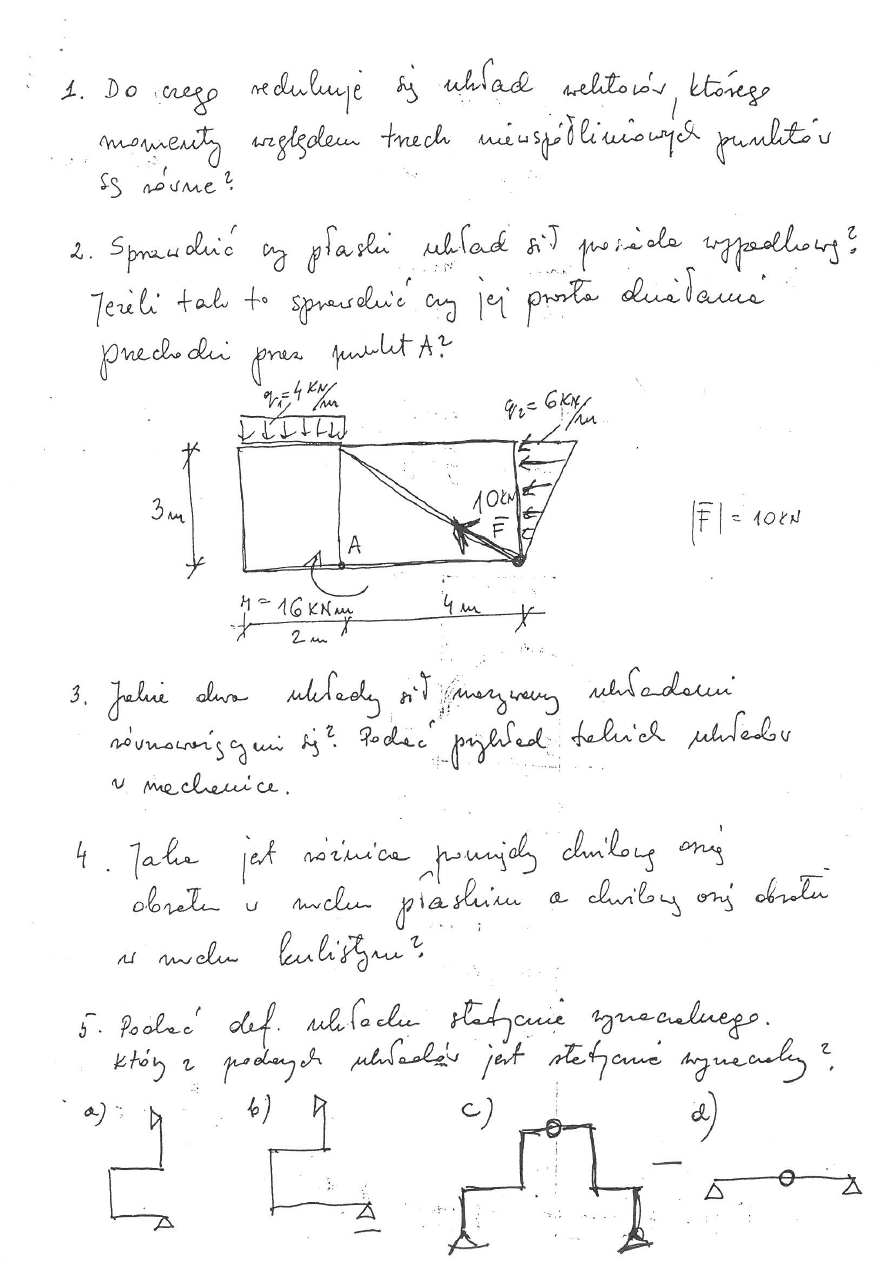 1. Do czego redukuje się układ wektorów, którego
momenty względem trzech niewspółliniowych punktów
są równe?
2. Sprawdzić czy płaski układ sił posiada wypadkową?
Jeżeli tak to sprawdzić czy jej prosta działania
przechodzi przez punkt A?
q₁=4kN/m
q₂=6kN/m
3m
10kN
F̅
|F̅| = 10kN
A
M = 16kNm
4m
2m
3. Jakie dwa układy sił nazywamy układami
równoważącymi się? Podać przykład takich układów
w mechanice.
4. Jaka jest różnica pomiędzy chwilową osią
obrotu w ruchu płaskim a chwilową osią obrotu
w ruchu kulistym?
5. Podać def. układu statycznie wyznaczalnego.
Który z podanych układów jest statycznie wyznaczalny?
a)
b)
c)
d)